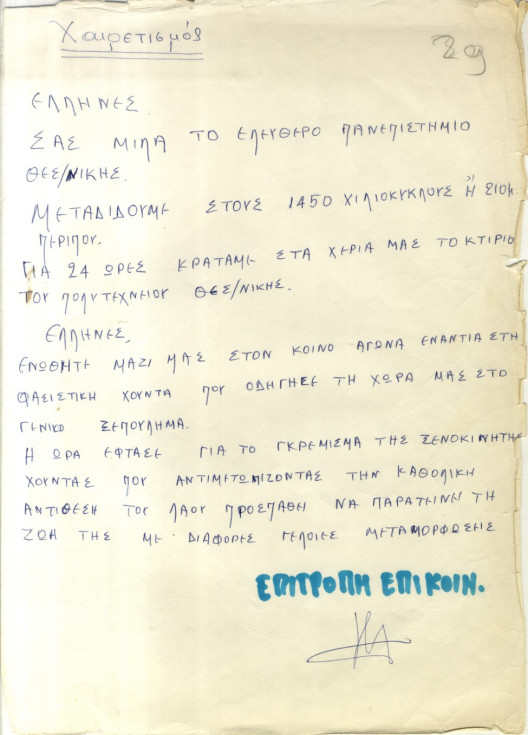 Χαιρετισμός
29
ΕΛΛΗΝΕΣ
ΣΑΣ ΜΙΛΑ ΤΟ ΕΛΕΥΘΕΡΟ ΠΑΝΕΠΙΣΤΗΜΙΟ
ΘΕΣ/ΝΙΚΗΣ.
ΜΕΤΑΔΙΔΟΥΜΕ ΣΤΟΥΣ 1450 ΧΙΛΙΟΚΥΚΛΟΥΣ Ή 210μ
ΠΕΡΙΠΟΥ.
ΓΙΑ 24 ΩΡΕΣ ΚΡΑΤΑΜΕ ΣΤΑ ΧΕΡΙΑ ΜΑΣ ΤΟ ΚΤΙΡΙΟ
ΤΟΥ ΠΟΛΥΤΕΧΝΕΙΟΥ ΘΕΣ/ΝΙΚΗΣ.
ΕΛΛΗΝΕΣ,
ΕΝΩΘΗΤΕ ΜΑΖΙ ΜΑΣ ΣΤΟΝ ΚΟΙΝΟ ΑΓΩΝΑ ΕΝΑΝΤΙΑ ΣΤΗ
ΦΑΣΙΣΤΙΚΗ ΧΟΥΝΤΑ ΠΟΥ ΟΔΗΓΗΣΕ ΤΗ ΧΩΡΑ ΜΑΣ ΣΤΟ
ΓΕΝΙΚΟ ΞΕΠΟΥΛΗΜΑ.
Η ΩΡΑ ΕΦΤΑΣΕ ΓΙΑ ΤΟ ΓΚΡΕΜΙΣΜΑ ΤΗΣ ΞΕΝΟΚΙΝΗΤΗΣ
ΧΟΥΝΤΑΣ ΠΟΥ ΑΝΤΙΜΕΤΩΠΙΖΟΝΤΑΣ ΤΗΝ ΚΑΘΟΛΙΚΗ
ΑΝΤΙΘΕΣΗ ΤΟΥ ΛΑΟΥ ΠΡΟΣΠΑΘΗ ΝΑ ΠΑΡΑΤΕΙΝΗ ΤΗ
ΖΩΗ ΤΗΣ ΜΕ ΔΙΑΦΟΡΕΣ ΓΕΛΟΙΕΣ ΜΕΤΑΜΟΡΦΩΣΕΙΣ
ΕΠΙΤΡΟΠΗ ΕΠΙΚΟΙΝ.